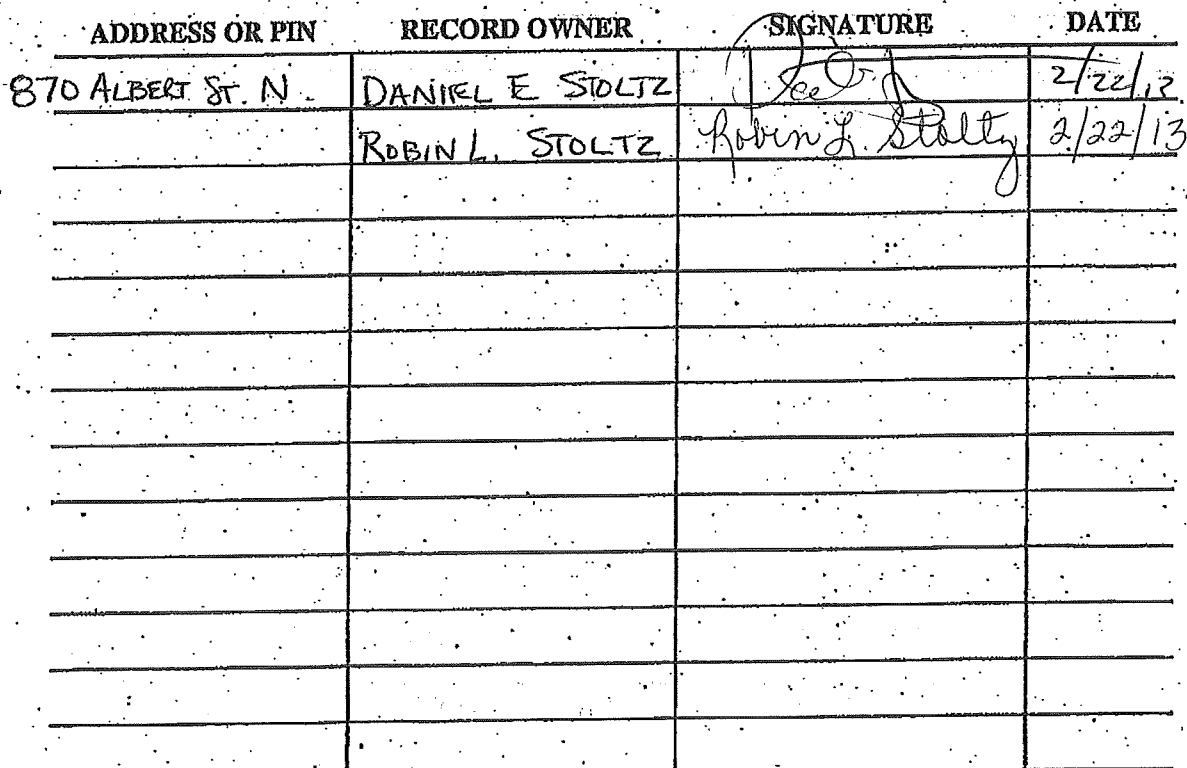 ADDRESS OR PIN RECORD OWNER SIGNATURE DATE
870 ALBERT ST. N. DANIEL E STOLTZ 2/22/13
ROBIN L. STOLTZ Robin L. Stoltz 2/22/13